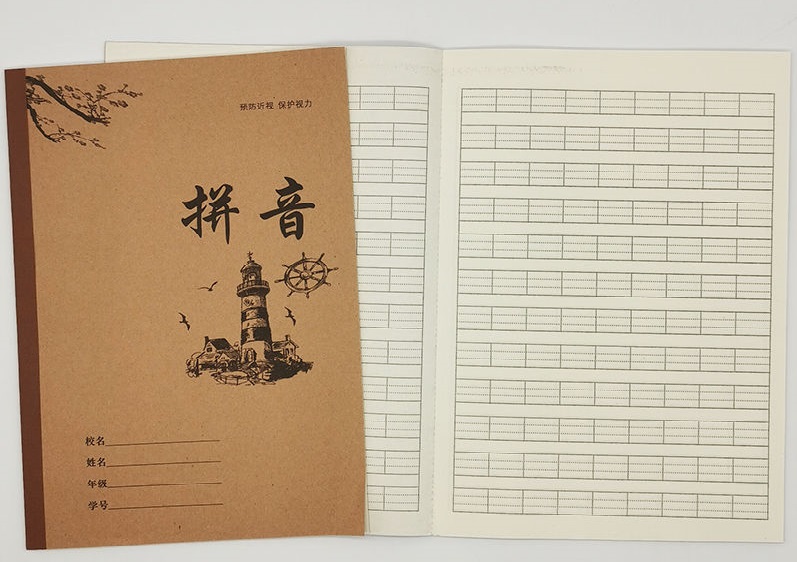 预防近视 保护视力
拼音
校名
姓名
年级
学号